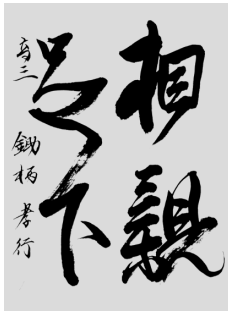 相親
足下
高三 鋤柄孝行